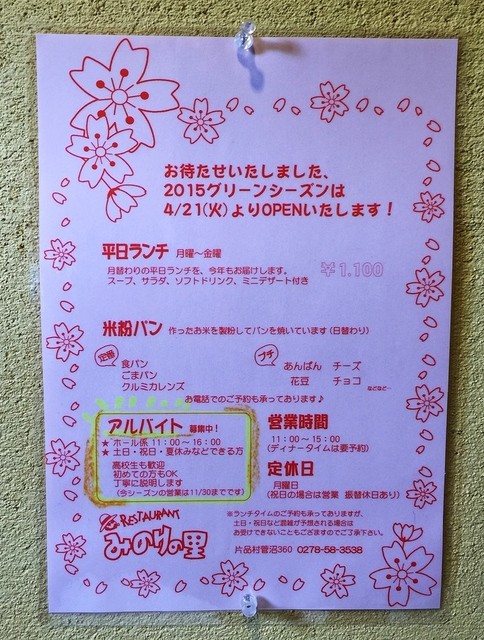 お待たせいたしました、
2015グリーンシーズンは
4/21(火)よりOPENいたします！
平日ランチ 月曜～金曜
月替わりの平日ランチを、今年もお届けします。
スープ、サラダ、ソフトドリンク、ミニデザート付き
¥1,100
米粉パン 作ったお米を製粉してパンを焼いています(日替わり)
定番
食パン
ごまパン
クルミカレンズ
プチ
あんぱん チーズ
花豆 チョコ
などなど…
お電話でのご予約も承っております♪
アルバイト 募集中！
★ ホール係 11：00～16：00
★ 土日・祝日・夏休みなどできる方
高校生も歓迎
初めての方もOK
丁寧に説明します
(今シーズンの営業は11/30までです)
営業時間
11：00～15：00
(ディナータイムは要予約)
定休日
月曜日
(祝日の場合は営業 振替休日あり)
RESTAURANT
みのりの里
※ランチタイムのご予約も承っておりますが、
土日・祝日など混雑が予想される場合は
お受けできないこともございますのでご了承下さい。
片品村菅沼360 0278-58-3538